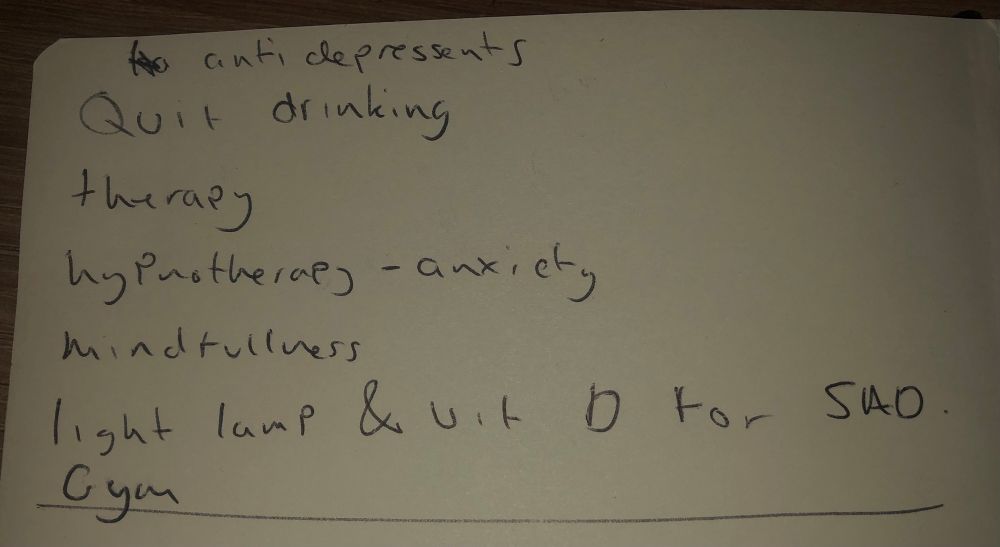 anti depressents
Quit drinking
therapy
hypnotherapy - anxiety
mindfullness
light lamp & vit D for SAD.
Gym